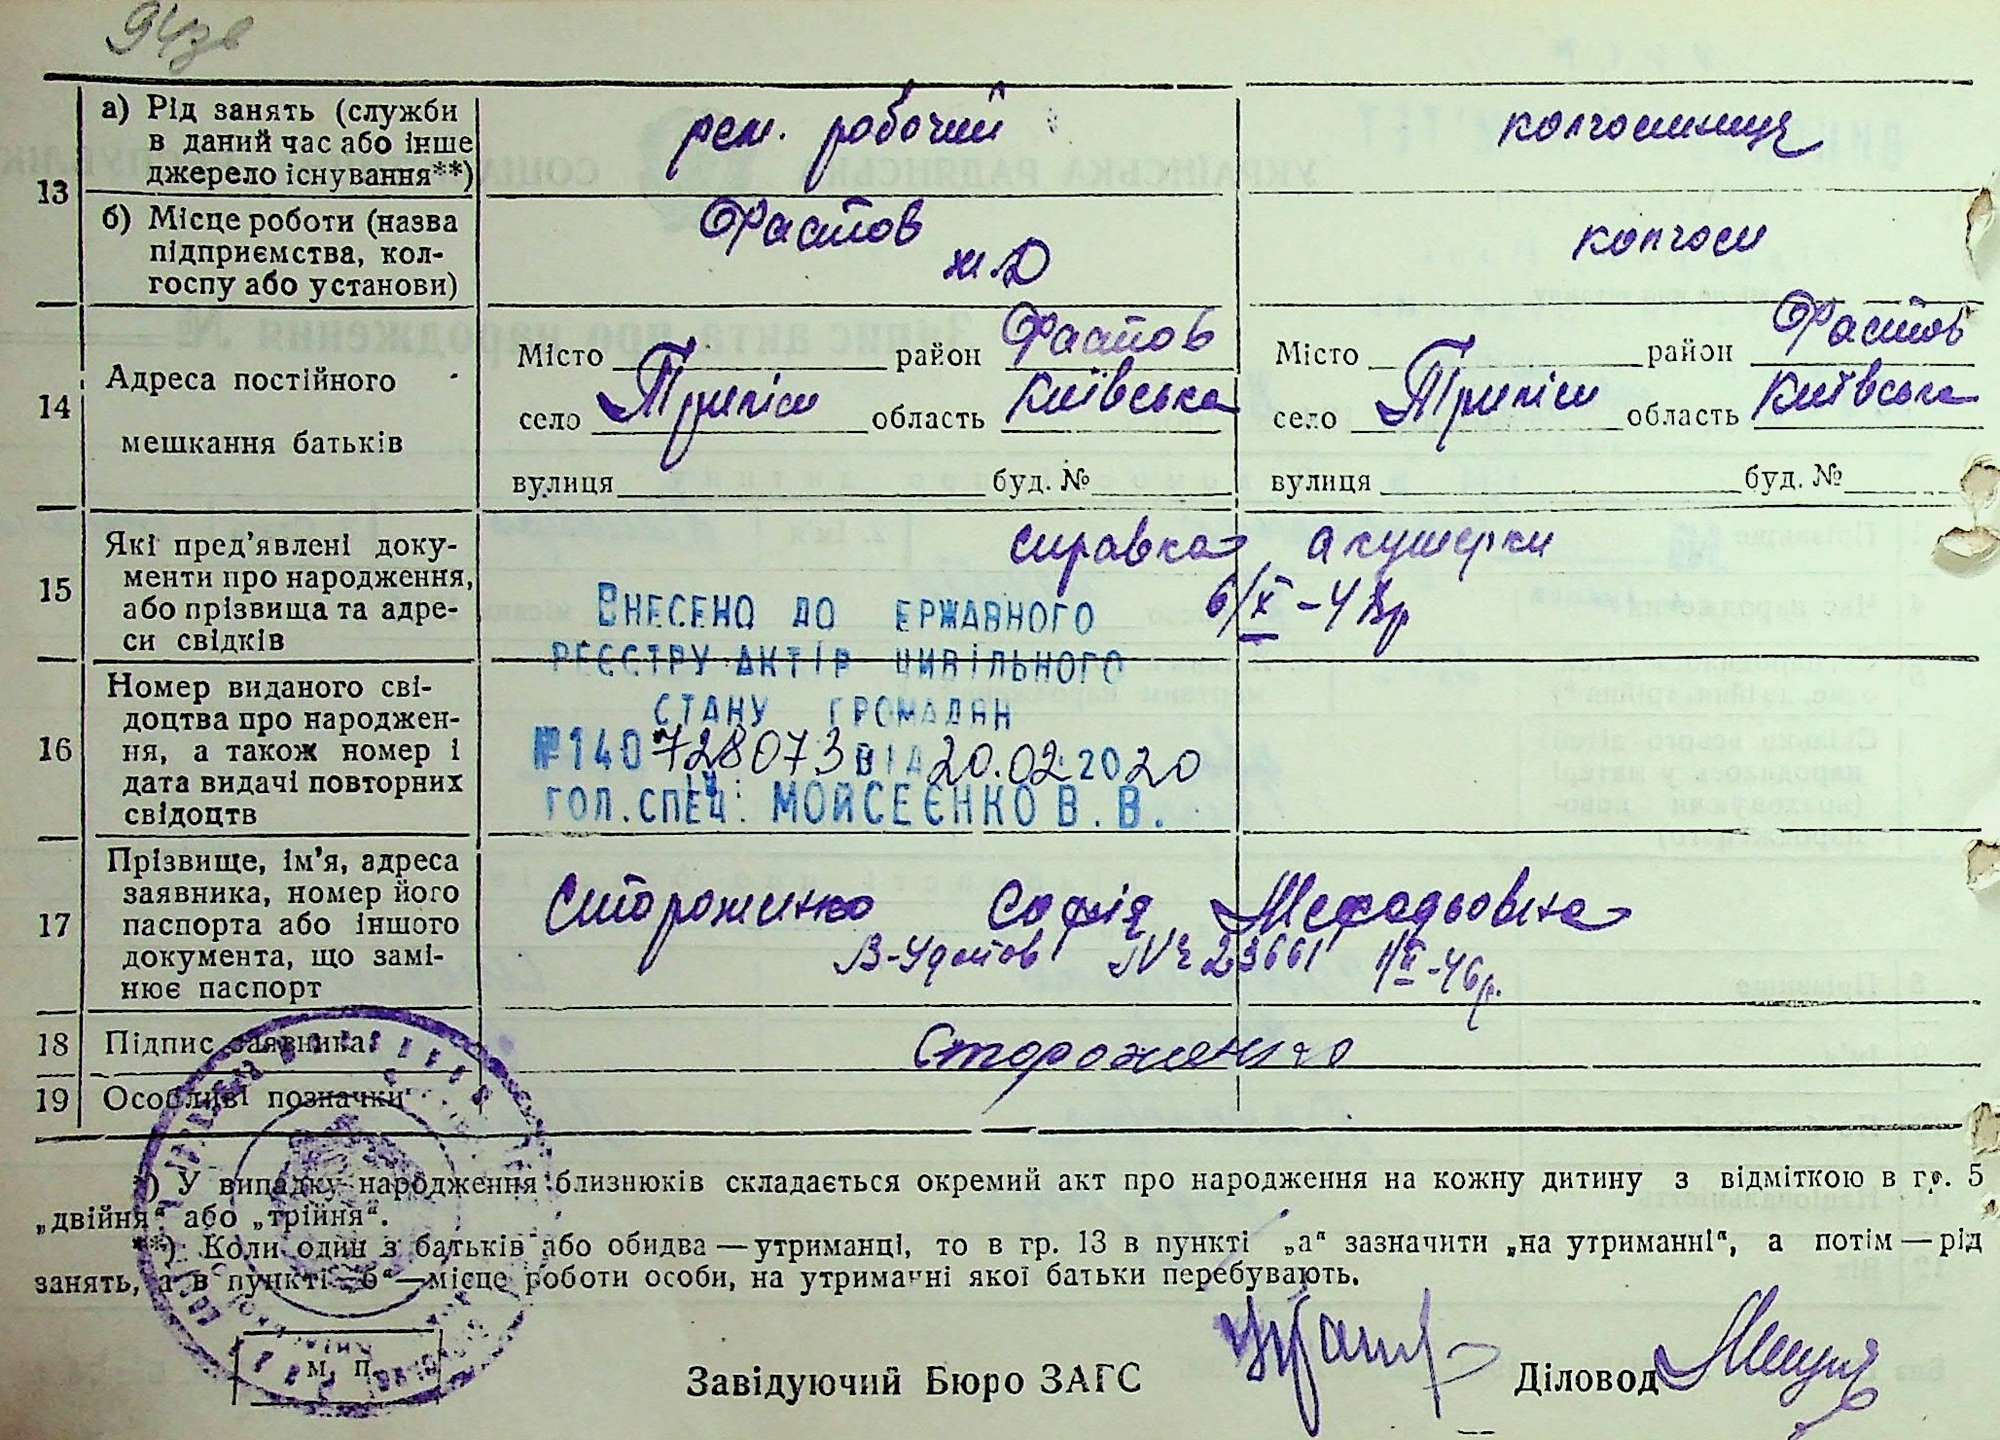 943в
13
а) Рід занять (служби
в даний час або інше
джерело існування**)
рем. робочий
колгосниця
б) Місце роботи (назва
підприємства, кол-
госпу або установи)
Фастов
ж.D
колгосп
14
Адреса постійного
мешкання батьків
Місто район Фастов
село Триліси область Київська
вулиця буд. №
Місто район Фастов
село Триліси область Київська
вулиця буд. №
15
Які пред'явлені доку-
менти про народження,
або прізвища та адре-
си свідків
справка акушерки
6/X-47р
ВНЕСЕНО ДО ЕРЖАВНОГО
РЕЄСТРУ АКТІВ ЦИВІЛЬНОГО
СТАНУ ГРОМАДЯН
№140728073 ВІД 20.02.2020
ГОЛ.СПЕЦ. МОЙСЕЄНКО В.В.
16
Номер виданого сві-
доцтва про народжен-
ня, а також номер і
дата видачі повторних
свідоцтв
17
Прізвище, ім'я, адреса
заявника, номер його
паспорта або іншого
документа, що замі-
нює паспорт
Стороженко Софія Мефодьовна
№ 23661 -46р.
18
Підпис заявника
Стороженко
19
Особливі позначки
*) У випадку народження близнюків складається окремий акт про народження на кожну дитину з відміткою в гр. 5
„двійня“ або „трійня“.
**) Коли один з батьків або обидва — утриманці, то в гр. 13 в пункті „а“ зазначити „на утриманні“, а потім — рід
занять, а в пункті „б“ — місце роботи особи, на утриманні якої батьки перебувають.
М. П.
Завідуючий Бюро ЗАГС
Діловод